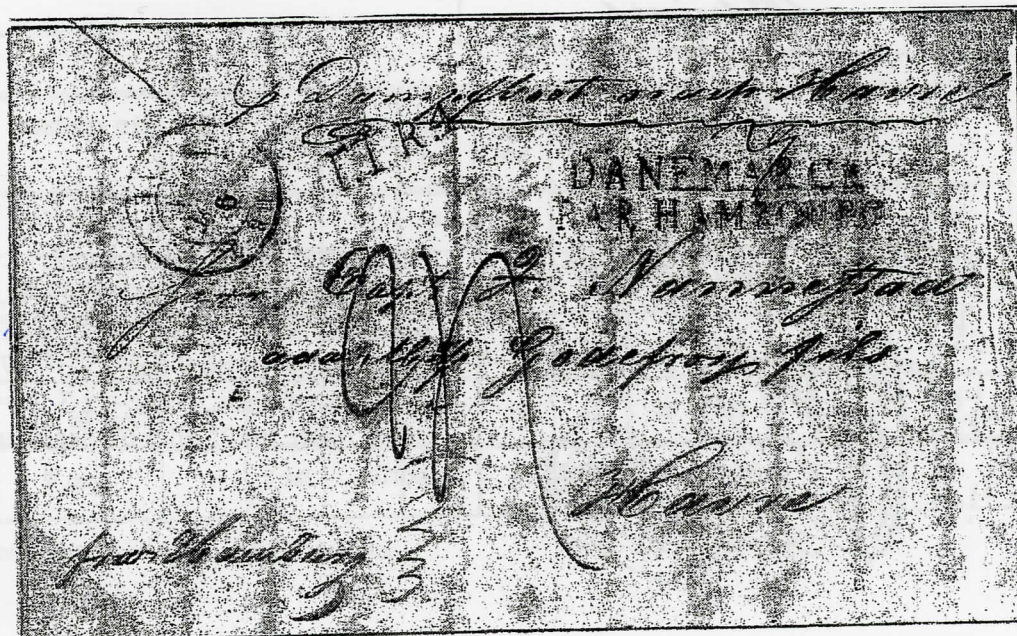 p Dampfboot nach Havre
T.T.R.4
DANEMARCK
PAR HAMBOURG
6
Herrn Capt J. Nannestad
Godefroy fils
Havre
fro Hamburg